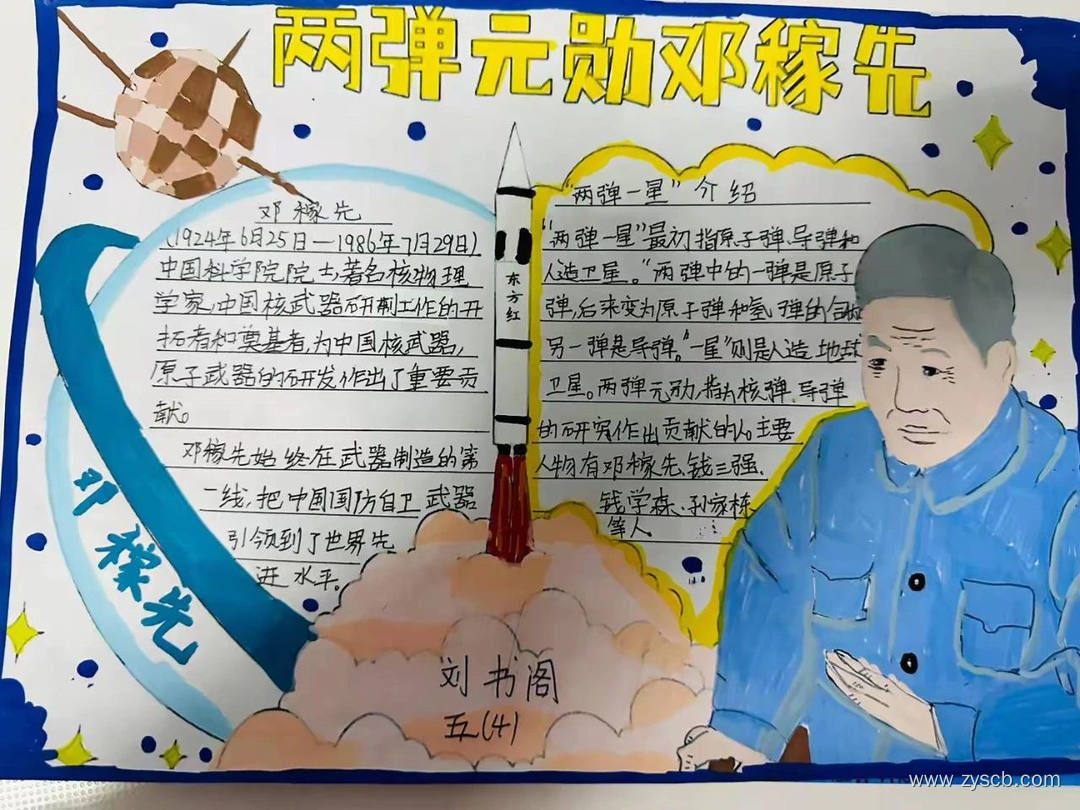 两弹元勋邓稼先
邓稼先
(1924年6月25日—1986年7月29日)
中国科学院院士,著名核物理
学家,中国核武器研制工作的开
拓者和奠基者,为中国核武器,
原子武器的研发作出了重要贡
献。
邓稼先始终在武器制造的第
一线,把中国国防自卫武器
引领到了世界先
进水平。
邓稼先
东方红
"两弹一星"介绍
"两弹一星"最初指原子弹、导弹和
人造卫星。"两弹中的一弹是原子
弹,后来变为原子弹和氢弹的合称
另一弹是导弹。"一星"则是人造地球
卫星。两弹元勋,指为核弹、导弹
的研究作出贡献的人。主要
人物有邓稼先、钱三强、
钱学森、孙家栋
等人
刘书阁
五(4)
www.zyscb.com